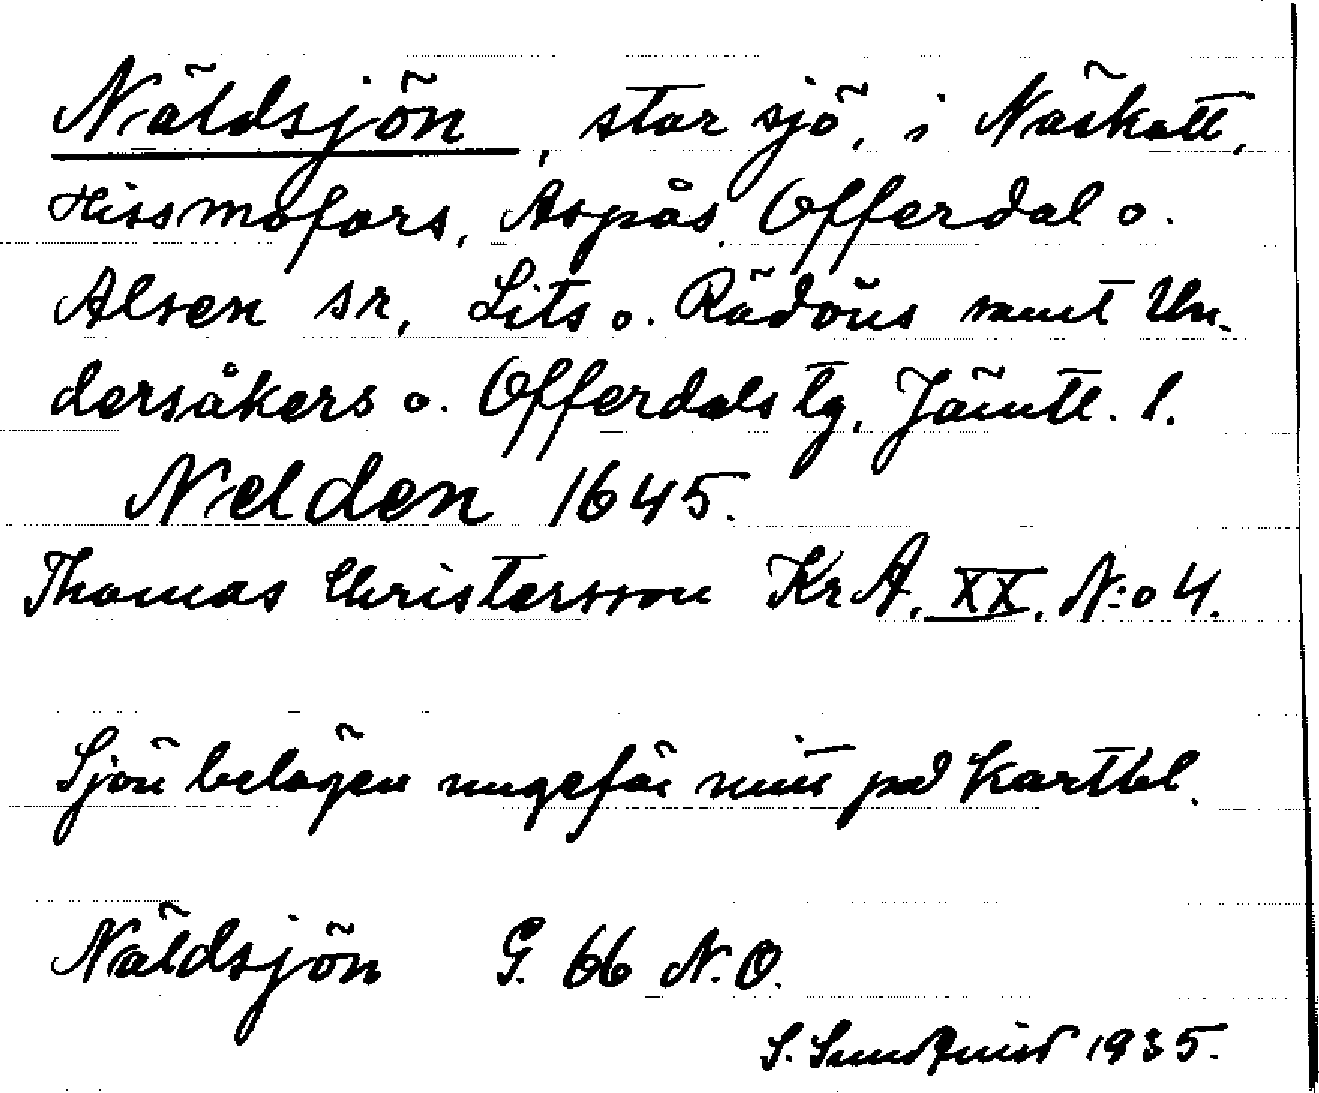 Näldsjön, stor sjö, i Näskott,
Hissmofors, Aspås, Offerdal o.
Alsen sn, Lits o. Rödöns samt Un-
dersåkers o. Offerdals tg, Jämtl. l.
Nelden 1645.
Thomas Christersson KrA. XX. N:o 4.
Sjön belägen ungefär mitt på kartbl.
Näldsjön G. 66 N.O.
S. Sundquist 1935.